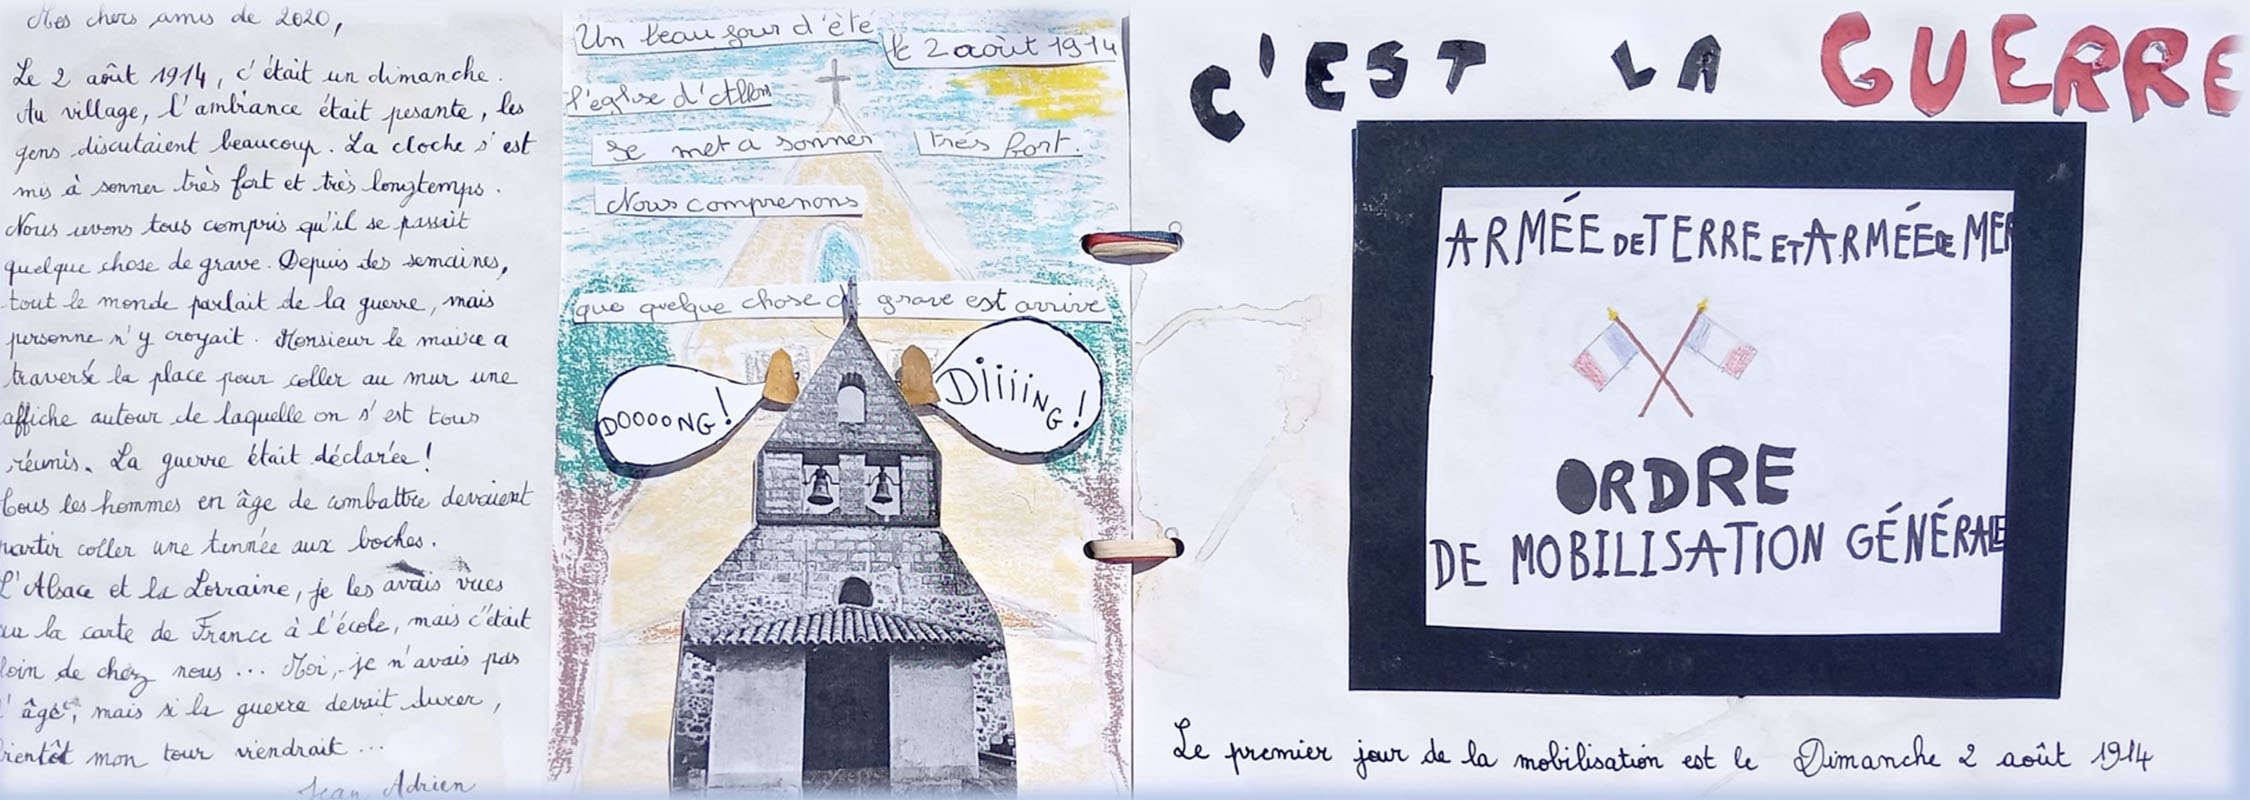 Mes chers amis de 2020,
Le 2 août 1914, c'était un dimanche.
Au village, l'ambiance était pesante, les
gens discutaient beaucoup. La cloche s'est
mis à sonner très fort et très longtemps.
Nous avons tous compris qu'il se passait
quelque chose de grave. Depuis des semaines,
tout le monde parlait de la guerre, mais
personne n'y croyait. Monsieur le maire a
traversé la place pour coller au mur une
affiche autour de laquelle on s'est tous
réunis. La guerre était déclarée!
Tous les hommes en âge de combattre devaient
partir coller une tannée aux boches.
L'Alsace et la Lorraine, je les avais vues
sur la carte de France à l'école, mais c'était
loin de chez nous ... Moi, je n'avais pas
l'âge, mais si la guerre devait durer,
bientôt mon tour viendrait ...
Jean Adrien
Un beau jour d'été
le 2 août 1914
l'église d'Allons
se met à sonner
très fort.
Nous comprenons
que quelque chose de grave est arrivé
DOOOONG!
DiiiiNG!
C'EST LA GUERRE
ARMÉE DE TERRE ET ARMÉE DE MER
ORDRE
DE MOBILISATION GÉNÉRALE
Le premier jour de la mobilisation est le Dimanche 2 août 1914